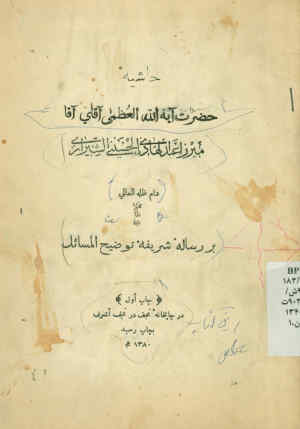 حاشیه
حضرت آیة الله العظمی آقای آقا
میرزا عبدالهادی الحسینی الشیرازی
(دام ظله العالی)
بر رساله شریفه توضیح المسائل
﴿چاپ اول﴾
در چاپخانه نجف در نجف اشرف
بچاپ رسید
۱۳۸۰ ه
BP
۱۸۳/